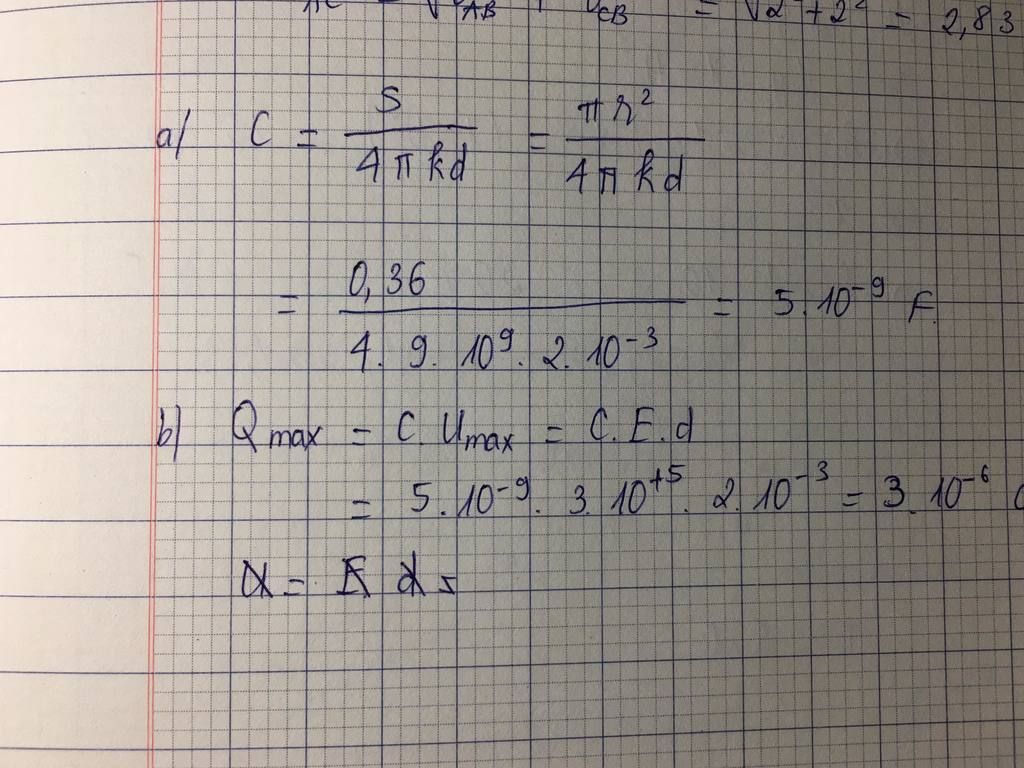 AB CB = √2² + 2² = 2,83
a/ C = S / 4πkd = πr² / 4πkd
= 0,36 / 4. 9. 10⁹. 2. 10⁻³ = 5. 10⁻⁹ F.
b/ Qmax = C. Umax = C. E. d
= 5. 10⁻⁹. 3. 10⁺⁵. 2. 10⁻³ = 3. 10⁻⁶ C